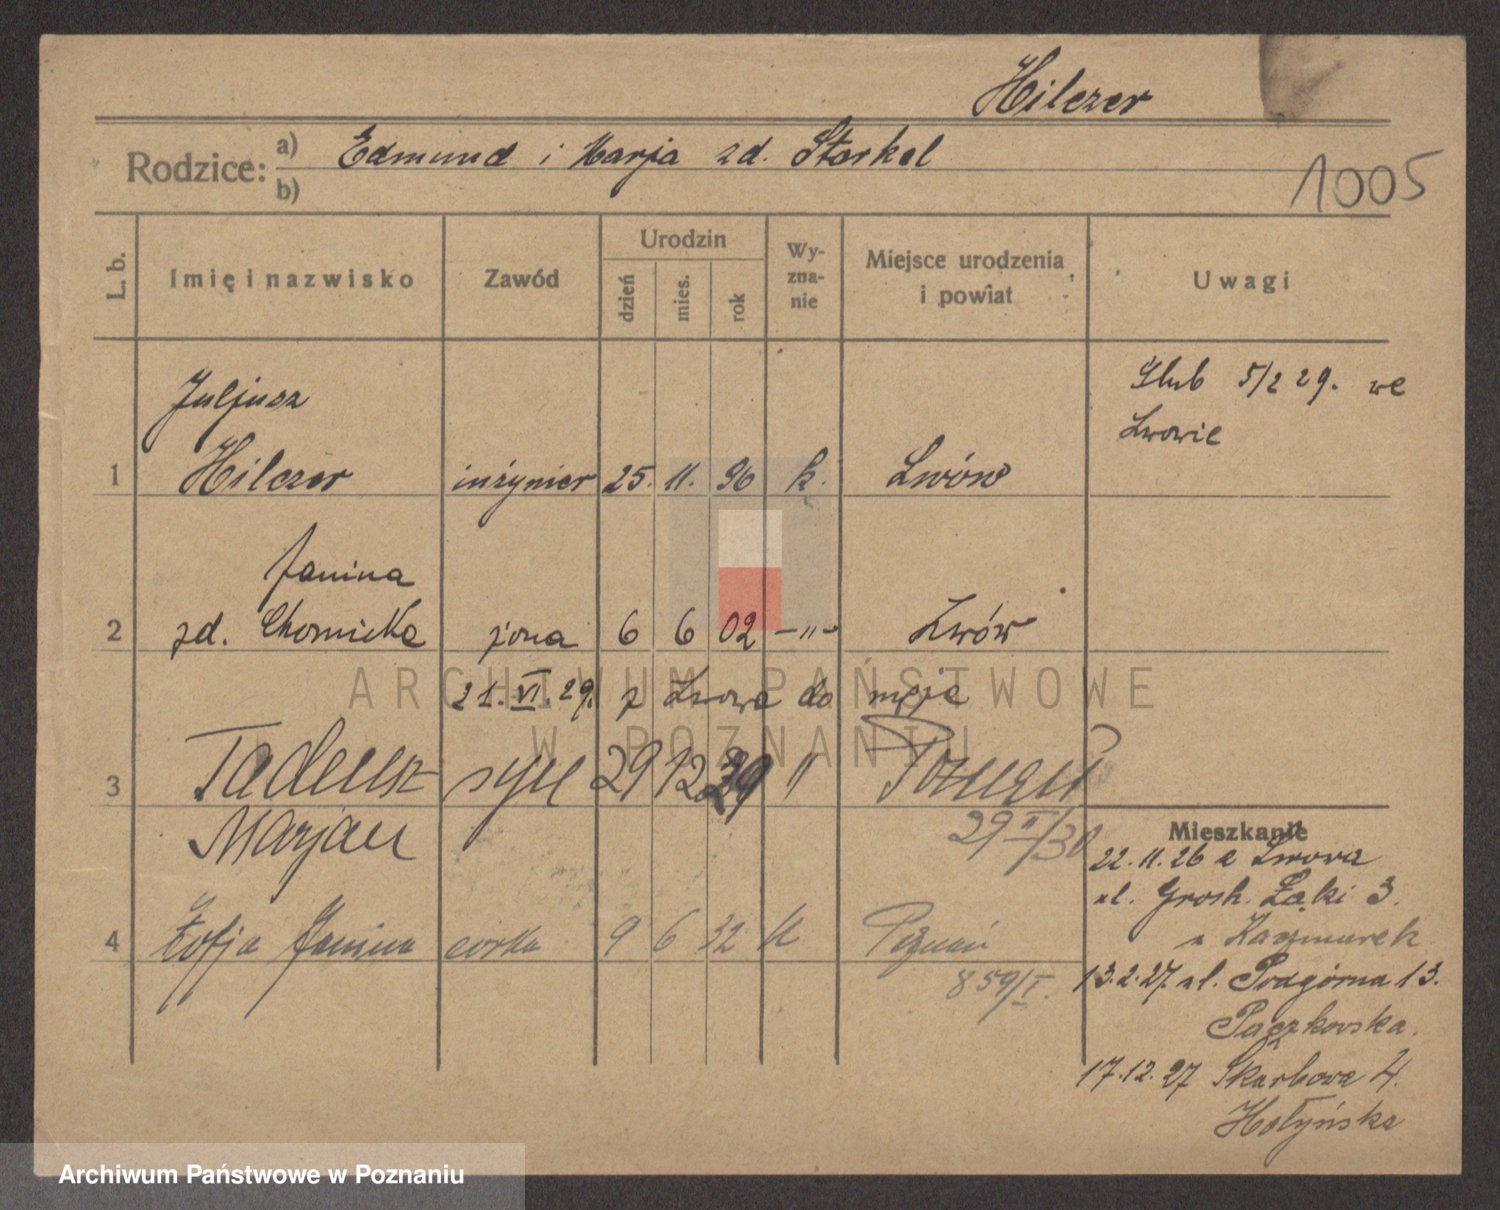 Hilczer
Rodzice: a) Edmund i Marja zd. Starkel
b)
1005
L. b.
Imię i nazwisko
Zawód
Urodzin
dzień
mies.
rok
Wy-
zna-
nie
Miejsce urodzenia
i powiat
Uwagi
Juljusz
Ślub 5/2 29. we
Lwowie
1 Hilczer inżynier 25. 11. 96 k. Lwów
Janina
2 zd. Chomicka żona 6 6 02 —"— Lwów
21. VI. 29. z Lwowa do męża
3 Tadeusz syn 29 12 29 " Poznań
Marjan
29 II/30
4 Zofja Janina córka 9 6 32 k Poznań
859/I.
Mieszkanie
22.11.26 z Lwowa
ul. Grosh. Łąki 3.
u Kaczmarek
13.2.27 ul. Podgórna 13.
Paczkowska.
17.12.27 Skarbowa 4.
Hołyńska
ARCHIWUM PAŃSTWOWE
W POZNANIU
Archiwum Państwowe w Poznaniu